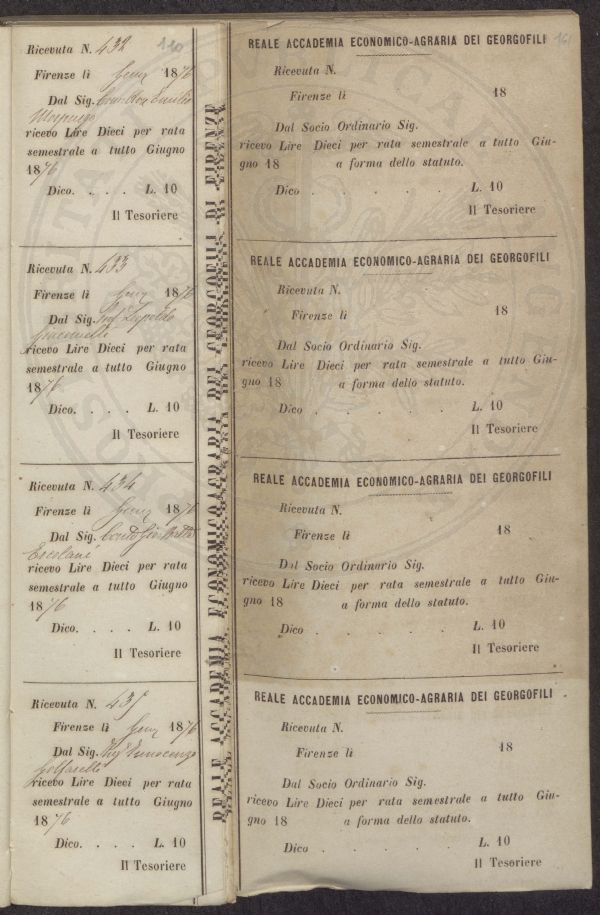 110
Ricevuta N. 432
Firenze lì 1876
Dal Sig. Emilio
ricevo Lire Dieci per rata
semestrale a tutto Giugno
1876
Dico. . . . L. 10
Il Tesoriere
Ricevuta N. 433
Firenze lì 1876
Dal Sig. Leopoldo
ricevo Lire Dieci per rata
semestrale a tutto Giugno
1876
Dico. . . . L. 10
Il Tesoriere
Ricevuta N. 434
Firenze lì 1876
Dal Sig. Conte
Ercolani
ricevo Lire Dieci per rata
semestrale a tutto Giugno
1876
Dico. . . . L. 10
Il Tesoriere
Ricevuta N. 435
Firenze lì 1876
Dal Sig. Innocenzo
Golfarelli
ricevo Lire Dieci per rata
semestrale a tutto Giugno
1876
Dico. . . . L. 10
Il Tesoriere
REALE ACCADEMIA ECONOMICO-AGRARIA DEI GEORGOFILI DI FIRENZE
REALE ACCADEMIA ECONOMICO-AGRARIA DEI GEORGOFILI
Ricevuta N.
Firenze lì 18
Dal Socio Ordinario Sig.
ricevo Lire Dieci per rata semestrale a tutto Giu-
gno 18 a forma dello statuto.
Dico . . . . . L. 10
Il Tesoriere
REALE ACCADEMIA ECONOMICO-AGRARIA DEI GEORGOFILI
Ricevuta N.
Firenze lì 18
Dal Socio Ordinario Sig.
ricevo Lire Dieci per rata semestrale a tutto Giu-
gno 18 a forma dello statuto.
Dico . . . . . L. 10
Il Tesoriere
REALE ACCADEMIA ECONOMICO-AGRARIA DEI GEORGOFILI
Ricevuta N.
Firenze lì 18
Dal Socio Ordinario Sig.
ricevo Lire Dieci per rata semestrale a tutto Giu-
gno 18 a forma dello statuto.
Dico . . . . . L. 10
Il Tesoriere
REALE ACCADEMIA ECONOMICO-AGRARIA DEI GEORGOFILI
Ricevuta N.
Firenze lì 18
Dal Socio Ordinario Sig.
ricevo Lire Dieci per rata semestrale a tutto Giu-
gno 18 a forma dello statuto.
Dico . . . . . L. 10
Il Tesoriere